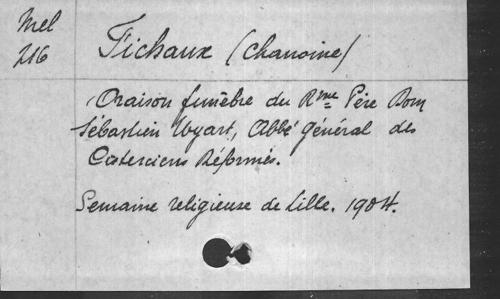 Mel
216
Fichaux (chanoine)
Oraison funèbre du Rme Père Dom
Sébastien Wyart, Abbé Général des
Cisterciens Réformés.
Semaine religieuse de Lille. 1904.